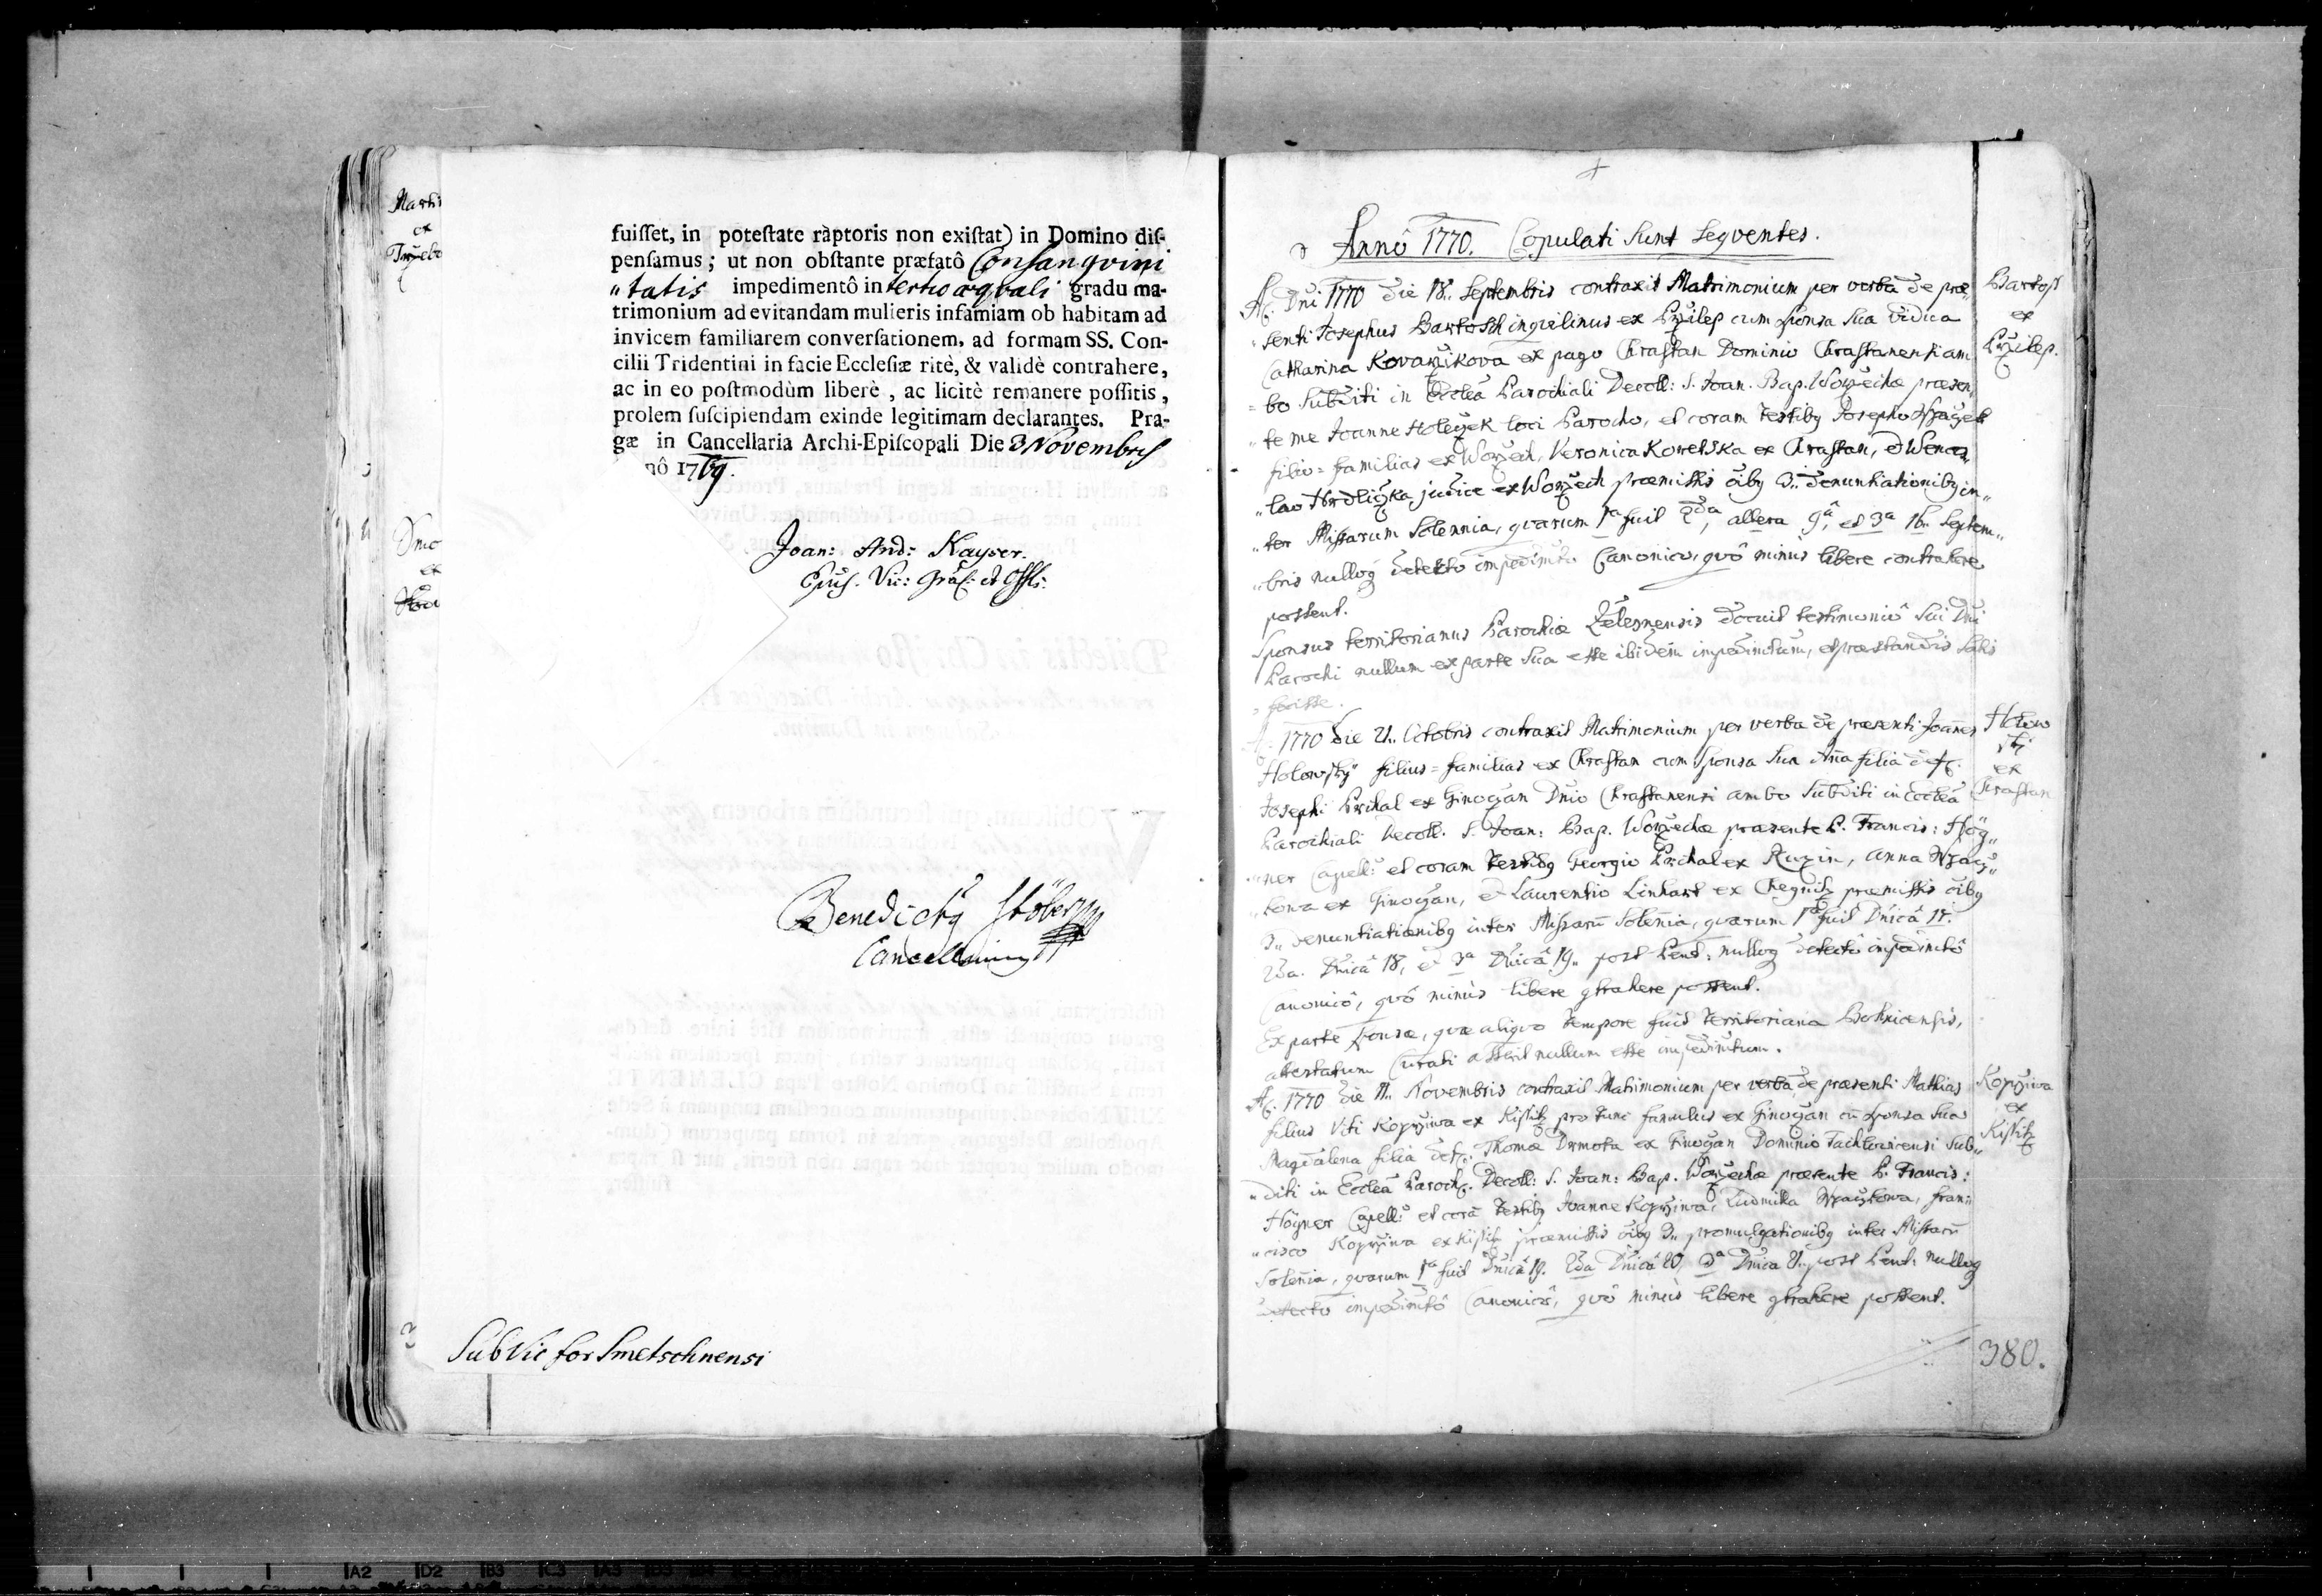 Marti
ex
fuiſſet, in poteſtate ràptoris non exiſtat) in Domino diſ-
penſamus; ut non obſtante præfatô Conſanqvini
„tatis impedimentô in tertio æqvali gradu ma-
trimonium ad evitandam mulieris infamiam ob habitam ad
invicem familiarem converſationem, ad formam SS. Con-
cilii Tridentini in facie Eccleſiæ ritè, & validè contrahere,
ac in eo poſtmodùm liberè, ac licitè remanere poſſitis,
prolem ſuſcipiendam exinde legitimam declarantes. Pra-
gæ in Cancellaria Archi-Epiſcopali Die 3 Novembris
nô 1769.
Joan: And: Kayser.
Benedictq Stöber
SubVic for Smetschnensi
Smo
ex
Annô 1770. Copulati sunt seqventes.
Dni 1770 die 18.. Septembris contraxit Matrimonium per verba de præ„
„senti Josephus Bartosch inqvilinus ex Przilep cum sponsa sua vidua
Catharina Kovarzikova ex pago Chrastan Dominio Chrastanensi am
bo subditi in Eccleâ Parochiali Decoll: S. Joan. Bap. Worzechæ præsen
„te me Joanne Holeczek loci Parocho, et coram testibq Josepho
filio=familias ex Worzech, Veronica Kowelska ex Chrastan, et Wences
„lao Hrdliczka judice ex Worzech præmissis oibq 3.. denuntiationibq in„
„ter Missarum Solennia, qvarum 1ª fuit 2da, altera 9â, et 3ª 16.. Septem„
„bris nulloq detecto impedimto Canonico, qvô minùs libere contrahere
possent.
Sponsus territorianus Parochiæ docuit testimoniô sui Dni
Parochi nullum ex parte sua esse ibidem impedimtum, et præstandis satis
„fecisse.
1770 die 21.. Octobris contraxit Matrimonium per verba de præsenti Joannes
Holowsky filius=familias ex Chrastan cum sponsa sua Aña filia def.
Josephi Prchal ex Ginoczan Dnio Chrastanensi ambo subditi in Eccleâ
Parochiali Decoll. S. Joan: Bap. Worzechæ præsente P. Francis: Hög„
„ner Capell: et coram testibq Georgio Prchal ex Ruzin, Anna
„kowa ex Ginoczan, et Laurentio Linhart ex præmissis oibq
3.. denuntiationibq inter Missarũ Soleñia, qvarum 1ª fuit Dnicâ 17.
2da. Dnicâ 18, et 3ª Dnicâ 19.. post Pent: nulloq detectô impedimtô
Canonicô, qvô minùs libere ꝯtrahere possent.
Ex parte sponsæ, qvæ aliqvo tempore fuit territoriana
attestatum Curati asserit nullum esse impedimtum.
1770 die 11.. Novembris contraxit Matrimonium per verba de præsenti Mathias
filius Viti Koprziwa ex Kissitz pro tunc famulus ex Ginoczan cũ sponsa sua
Magdalena filia def. Thomæ Drmota ex Ginoczan Dominio Tachlovicensi sub„
„diti in Eccleâ Paroch. Decoll: S. Joan: Bap. Worzechæ præsente P. Francis:
Högner Capell: et corã testibq Joanne Koprziwa, Ludmilla fran„
„cisco Koprziwa ex Kissitz præmissis oibq 3.. promulgationibq inter Missarũ
Soleñia, qvarum 1ª fuit Dnicâ 19. 2da Dnicâ 20, 3ª Dnica 21. post Pent: nulloq
detecto impedimtô Canonicô, qvô minùs libere ꝯtrahere possent.
Bartoſs
ex
Przilep.
Holow
sky
ex
Chrastan
Koprziwa
ex
Kissitz
380.